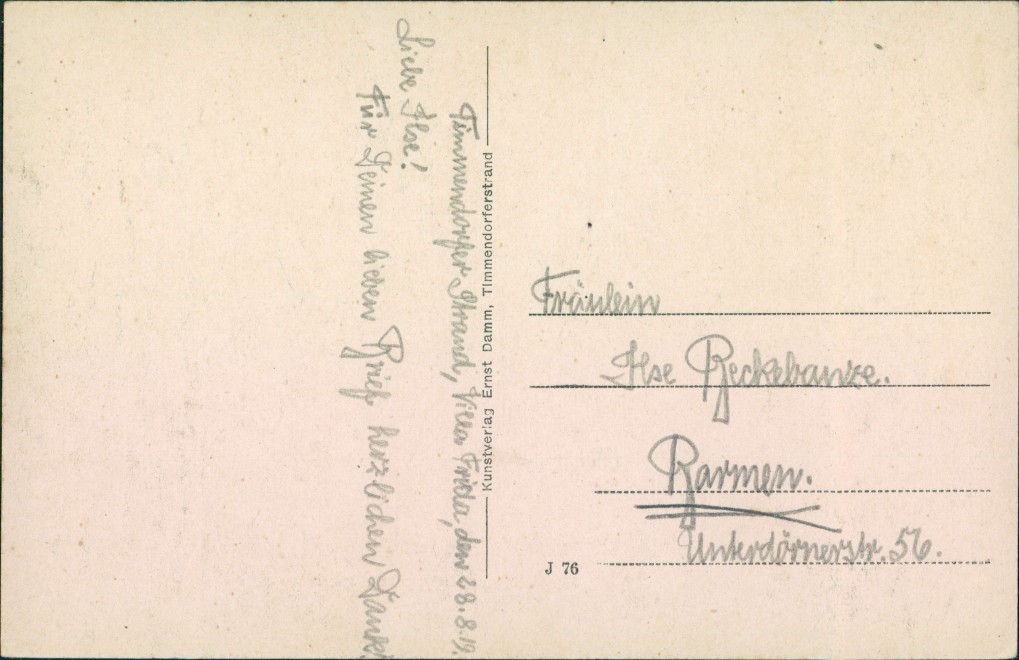 Timmendorfer Strand, Villa Frida, den 28.8.19.
Liebe Ilse!
Für Deinen lieben Brief herzlichen Dank!
Kunstverlag Ernst Damm, Timmendorferstrand
Fräulein
Ilse Beckebanze.
Barmen.
Unterdörnerstr. 56.
J 76